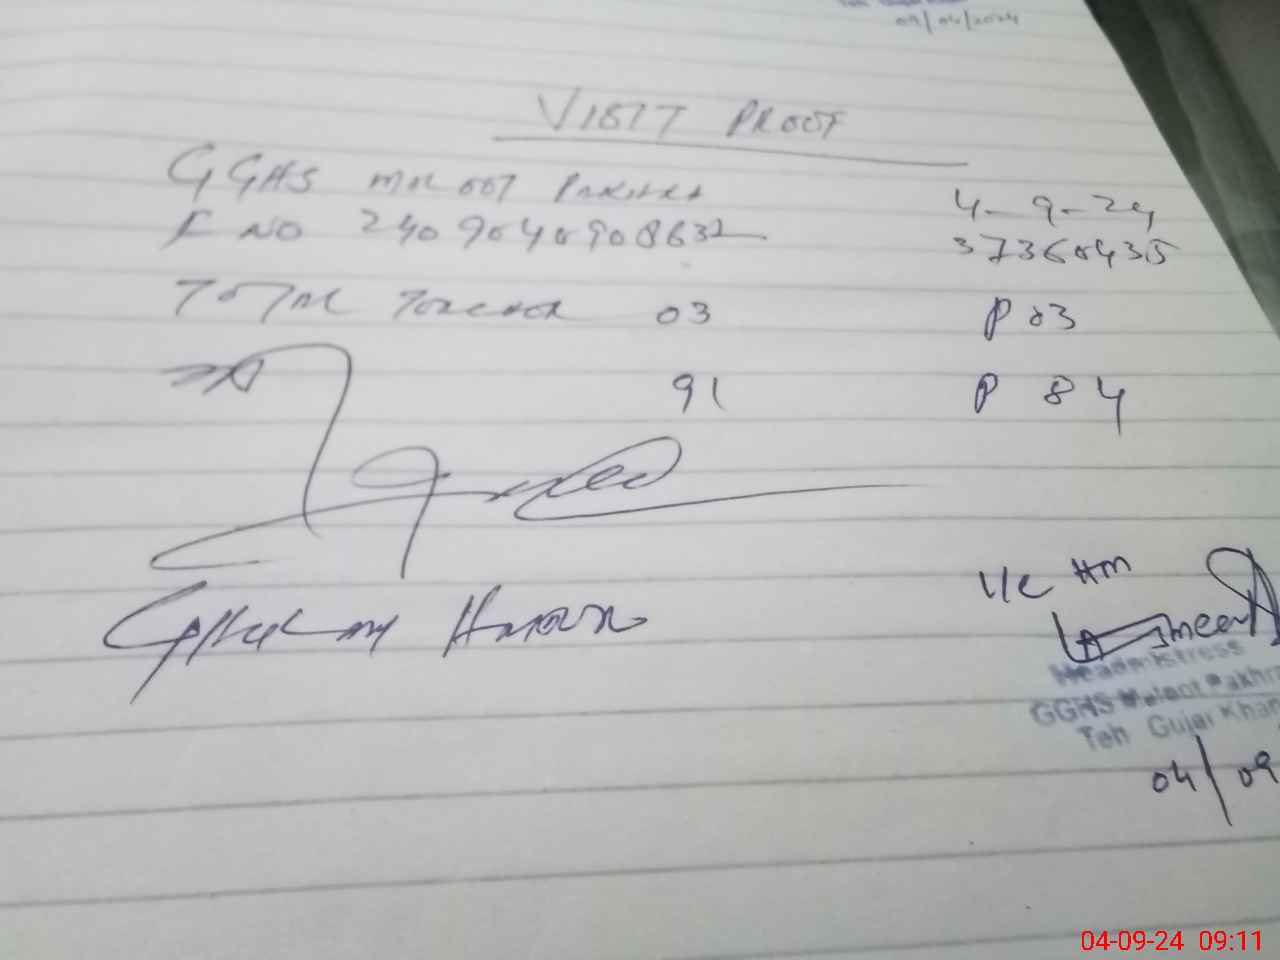 09/04/2024
VISIT PROOF
GGHS Maloot Pakhral 4-9-24
F NO 2409040908632 37360435
TOTAL Teacher 03 P 03
91 P 84
Ghulam Hassan
I/C HM
Headmistress
GGHS Maloot Pakhra
Teh Gujar Khan
04/09
04-09-24 09:11